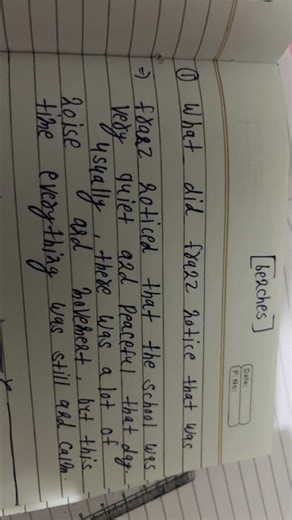 Date:
P. No:
[benches]
① What did franz notice that was
⇒ franz noticed that the school was
very quiet and peaceful that day.
usually, there was a lot of
noise and movement, but this
time everything was still and calm.